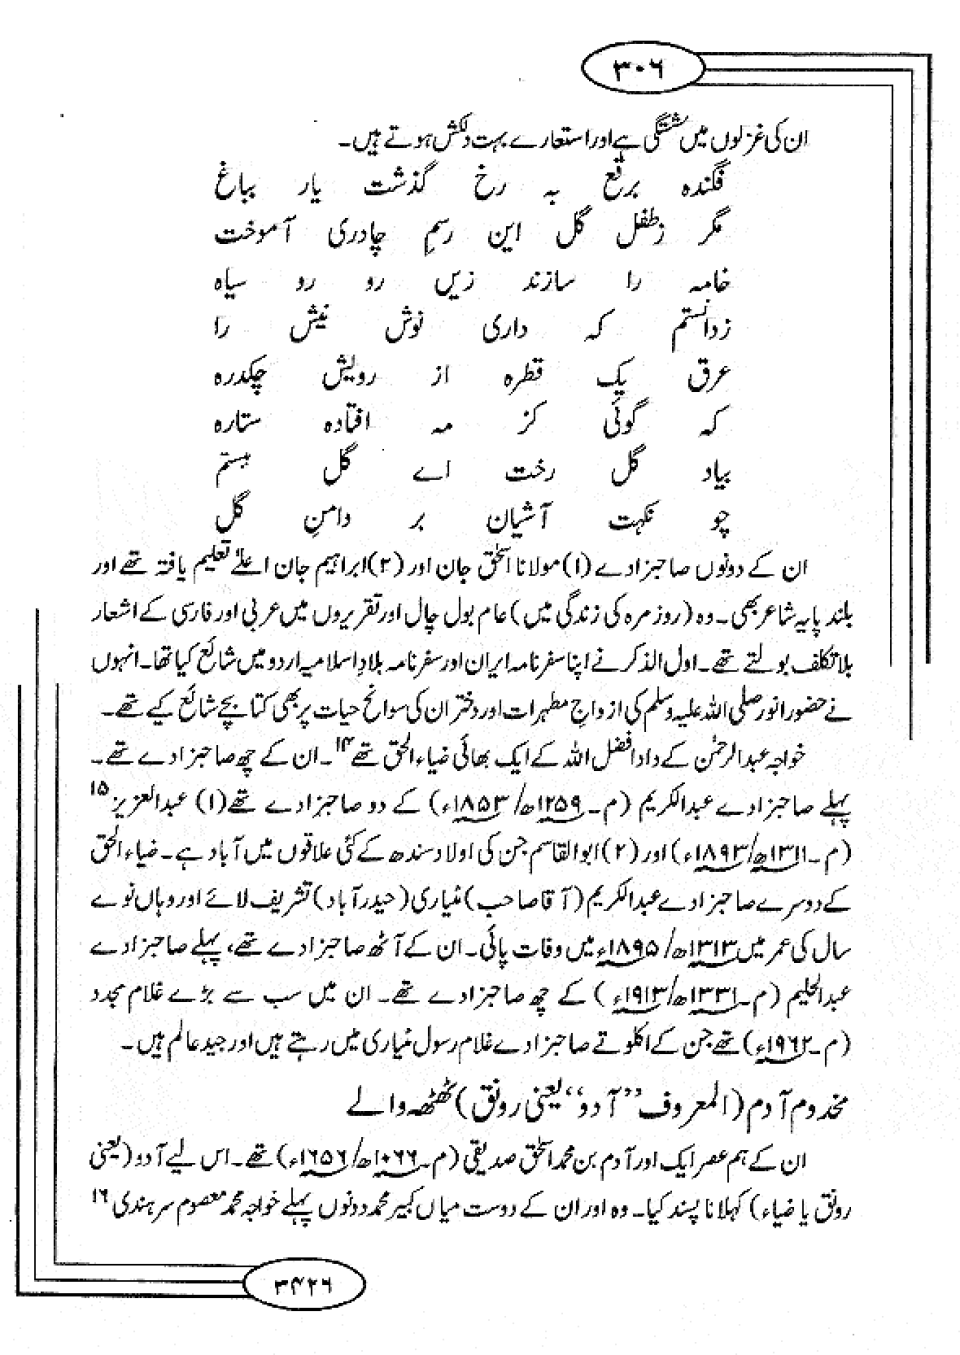 ۳۰۶
ان کی غزلوں میں شستگی ہے اور استعارے بہت دلکش ہوتے ہیں۔
فگندہ برقع بہ رخ گذشت یار بباغ
مگر زطفل گل این رسمِ چادری آموخت
خامہ را سازند زیں رو رو سیاہ
زدانستم کہ داری نوش نیش را
عرق یک قطرہ از رویش چکدرہ
کہ گوئی کز مہ افتادہ ستارہ
بیاد گل رخت اے گل ہستم
چو نکہت آشیان بر دامنِ گل
ان کے دونوں صاحبزادے (۱) مولانا اسحٰق جان اور (۲) ابراہیم جان اعلےٰ تعلیم یافتہ تھے اور
بلند پایہ شاعر بھی۔ وہ (روزمرہ کی زندگی میں) عام بول چال اور تقریروں میں عربی اور فارسی کے اشعار
بلا تکلف بولتے تھے۔ اول الذکر نے اپنا سفرنامہ ایران اور سفرنامہ بلادِ اسلامیہ اردو میں شائع کیا تھا۔ انہوں
نے حضور انور صلی اللہ علیہ وسلم کی ازواجِ مطہرات اور دختران کی سوانح حیات پر بھی کتابچے شائع کیے تھے۔
خواجہ عبدالرحمٰن کے دادا فضل اللہ کے ایک بھائی ضیاء الحق تھے۱۴۔ ان کے چھ صاحبزادے تھے۔
پہلے صاحبزادے عبدالکریم (م۔۱۲۵۹ھ/۱۸۵۳ء) کے دو صاحبزادے تھے (۱) عبدالعزیز۱۵
(م۔۱۳۱۱ھ/۱۸۹۳ء) اور (۲) ابوالقاسم جن کی اولاد سندھ کے کئی علاقوں میں آباد ہے۔ ضیاء الحق
کے دوسرے صاحبزادے عبدالکریم (آقا صاحب) مٹیاری (حیدرآباد) تشریف لائے اور وہاں نوے
سال کی عمر میں ۱۳۱۳ھ/۱۸۹۵ء میں وفات پائی۔ ان کے آٹھ صاحبزادے تھے، پہلے صاحبزادے
عبدالحلیم (م۔۱۳۳۱ھ/۱۹۱۳ء) کے چھ صاحبزادے تھے۔ ان میں سب سے بڑے غلام مجدد
(م۔۱۹۶۲ء) تھے جن کے اکلوتے صاحبزادے غلام رسول مٹیاری میں رہتے ہیں اور جید عالم ہیں۔
مخدوم آدم (المعروف "آدو" یعنی رونق) ٹھٹھہ والے
ان کے ہم عصر ایک اور آدم بن محمد اسحٰق صدیقی (م۔۱۰۶۶ھ/۱۶۵۶ء) تھے۔ اس لیے آدو (یعنی
رونق یا ضیاء) کہلانا پسند کیا۔ وہ اور ان کے دوست میاں کبیر محمد دونوں پہلے خواجہ محمد معصوم سرہندی۱۶
۳۴۲۶